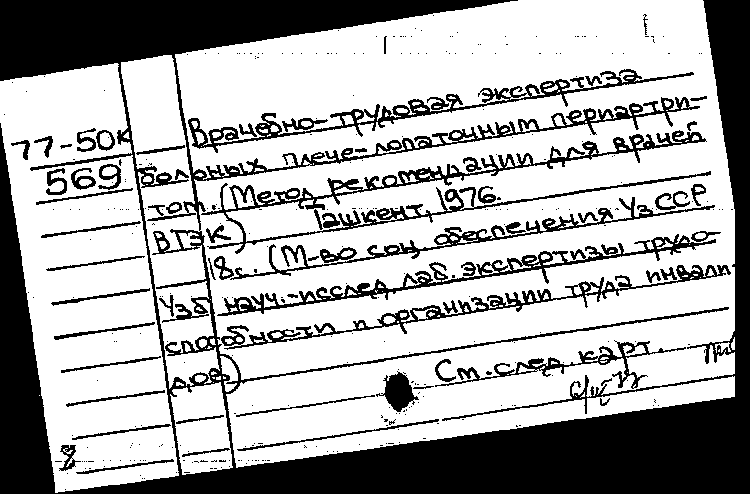 Врачебно-трудовая экспертиза
77-50к
569
больных плече-лопаточным периартри-
том. (Метод. рекомендации для врачей
ВТЭК). Ташкент, 1976.
18с. (М-во соц. обеспечения УзССР
Узб. науч.-исслед. лаб. экспертизы трудо-
способности и организации труда инвали-
дов)
См. след. карт.
8